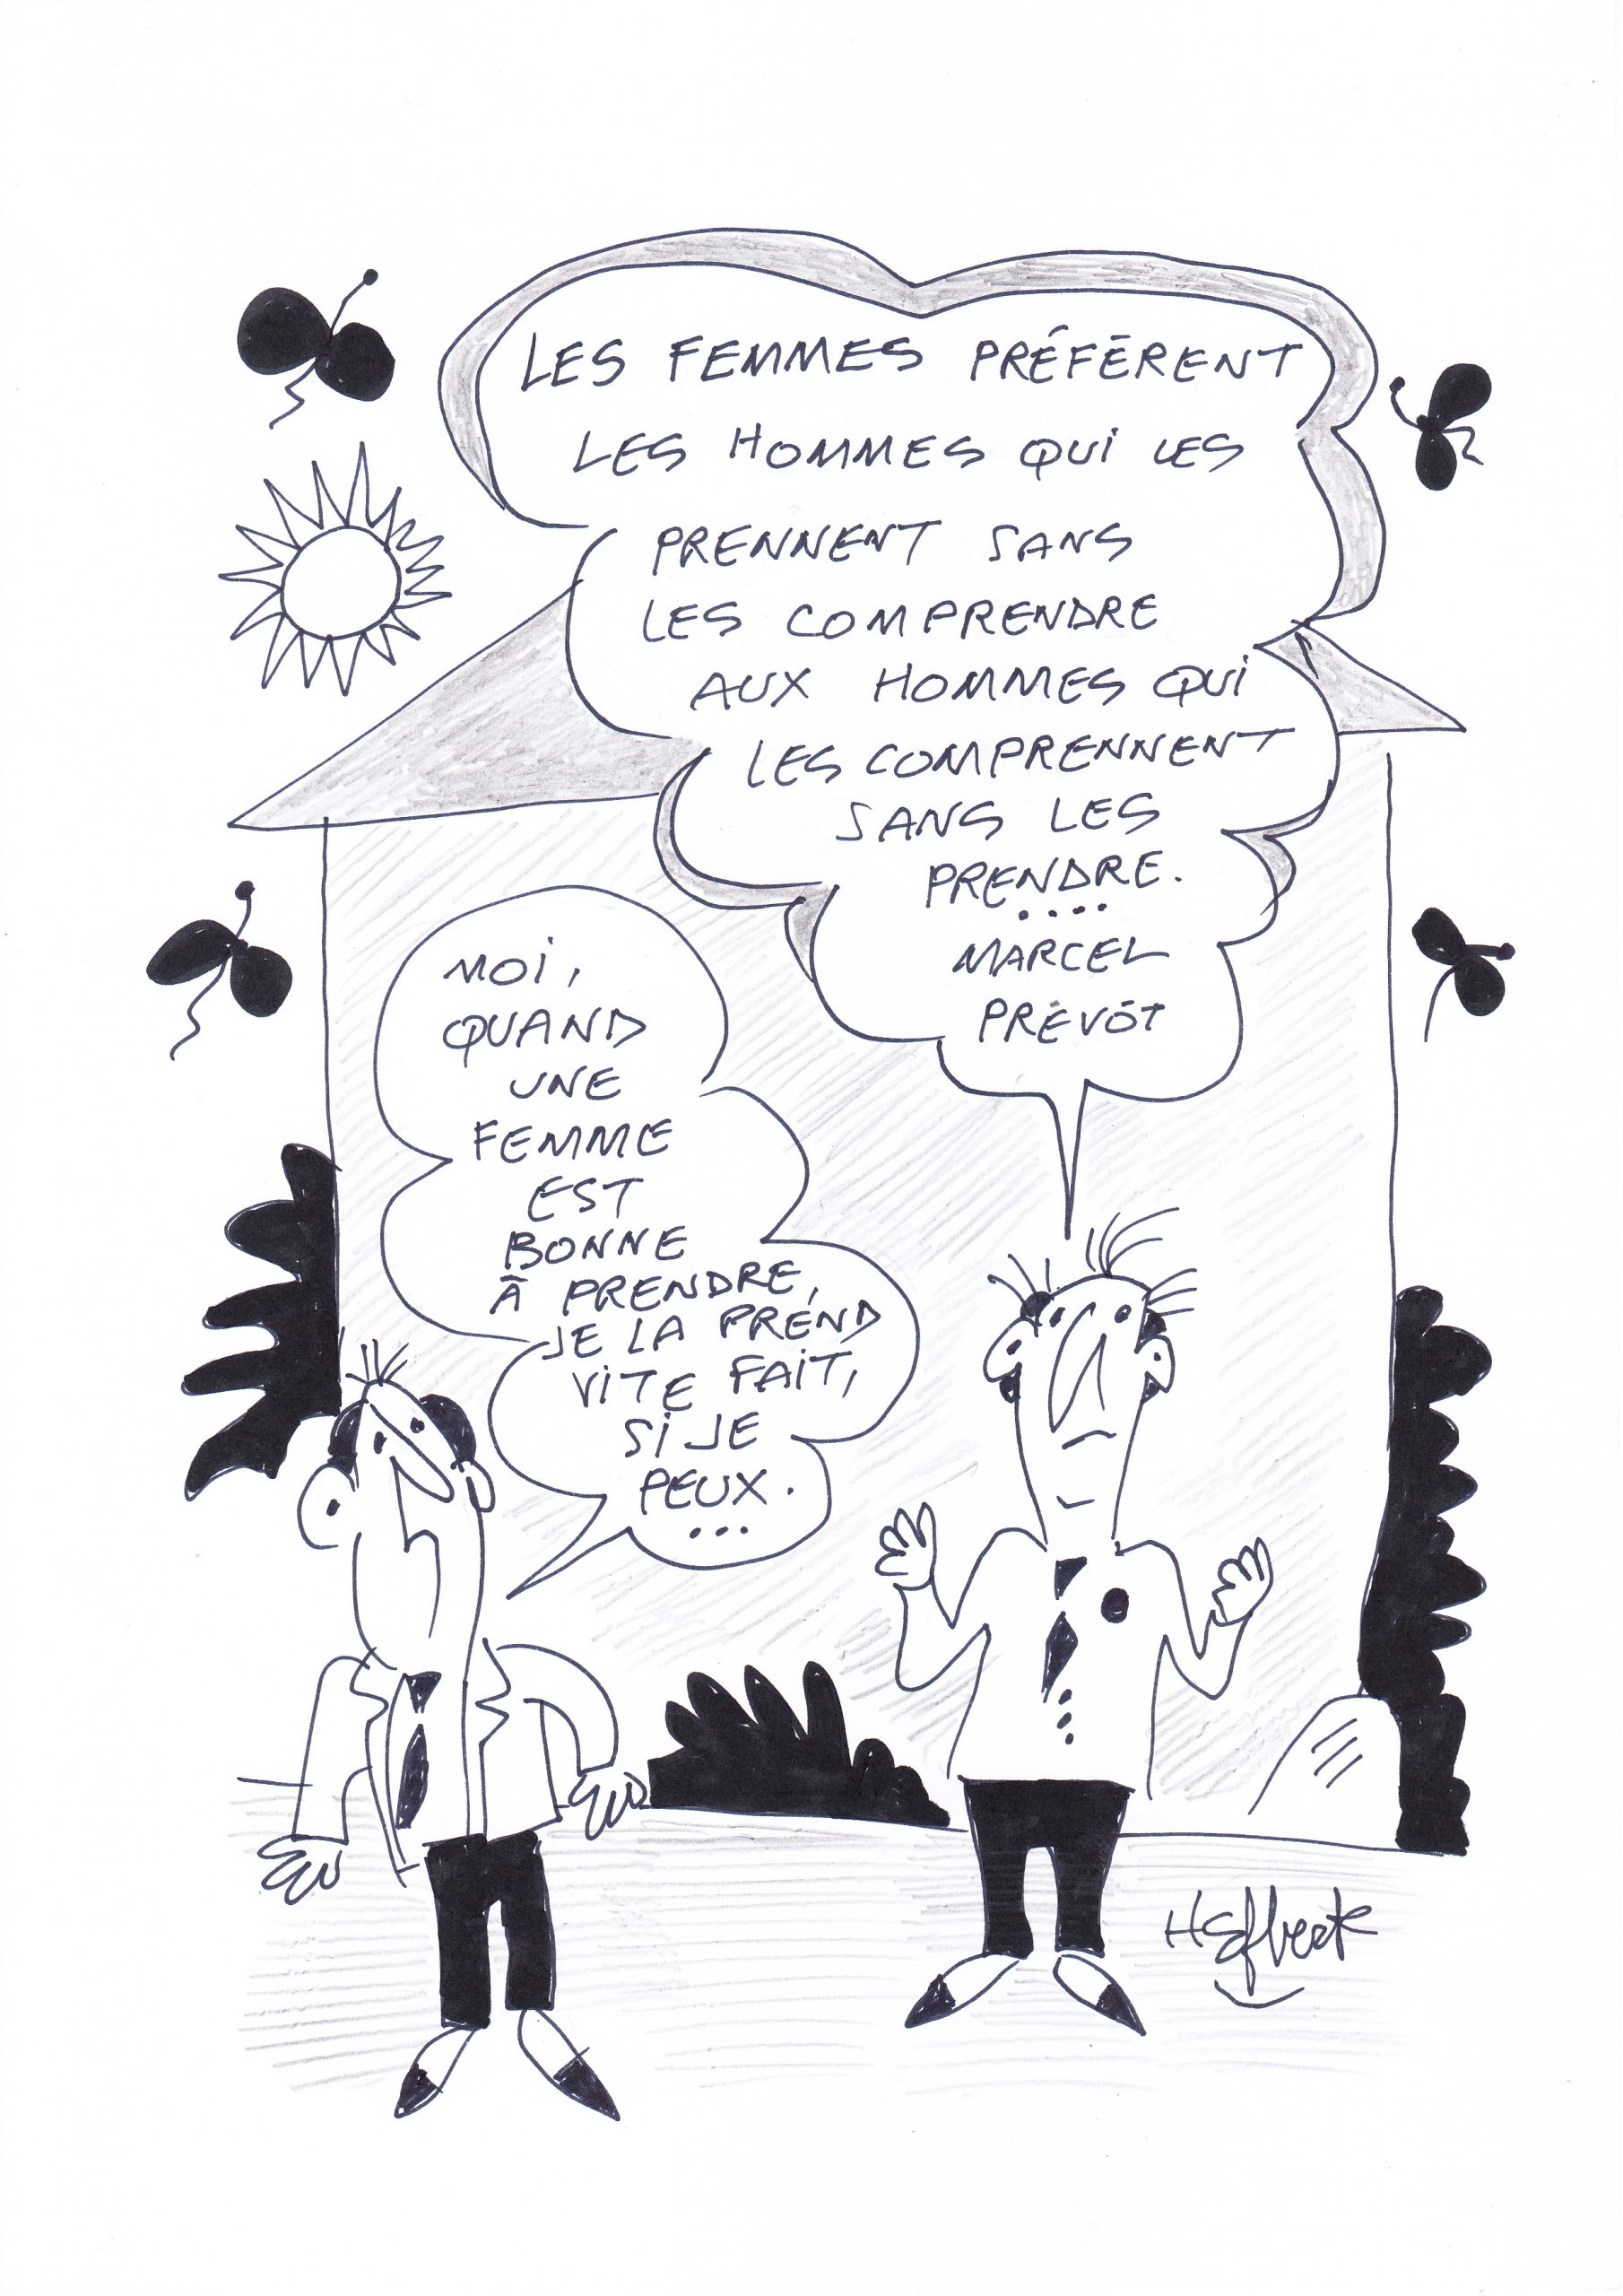 LES FEMMES PRÉFÉRENT
LES HOMMES QUI LES
PRENNENT SANS
LES COMPRENDRE
AUX HOMMES QUI
LES COMPRENNENT
SANS LES
PRENDRE.
....
MARCEL
PRÉVÔT
MOI,
QUAND
UNE
FEMME
EST
BONNE
À PRENDRE,
JE LA PREND
VITE FAIT,
SI JE
PEUX.
...